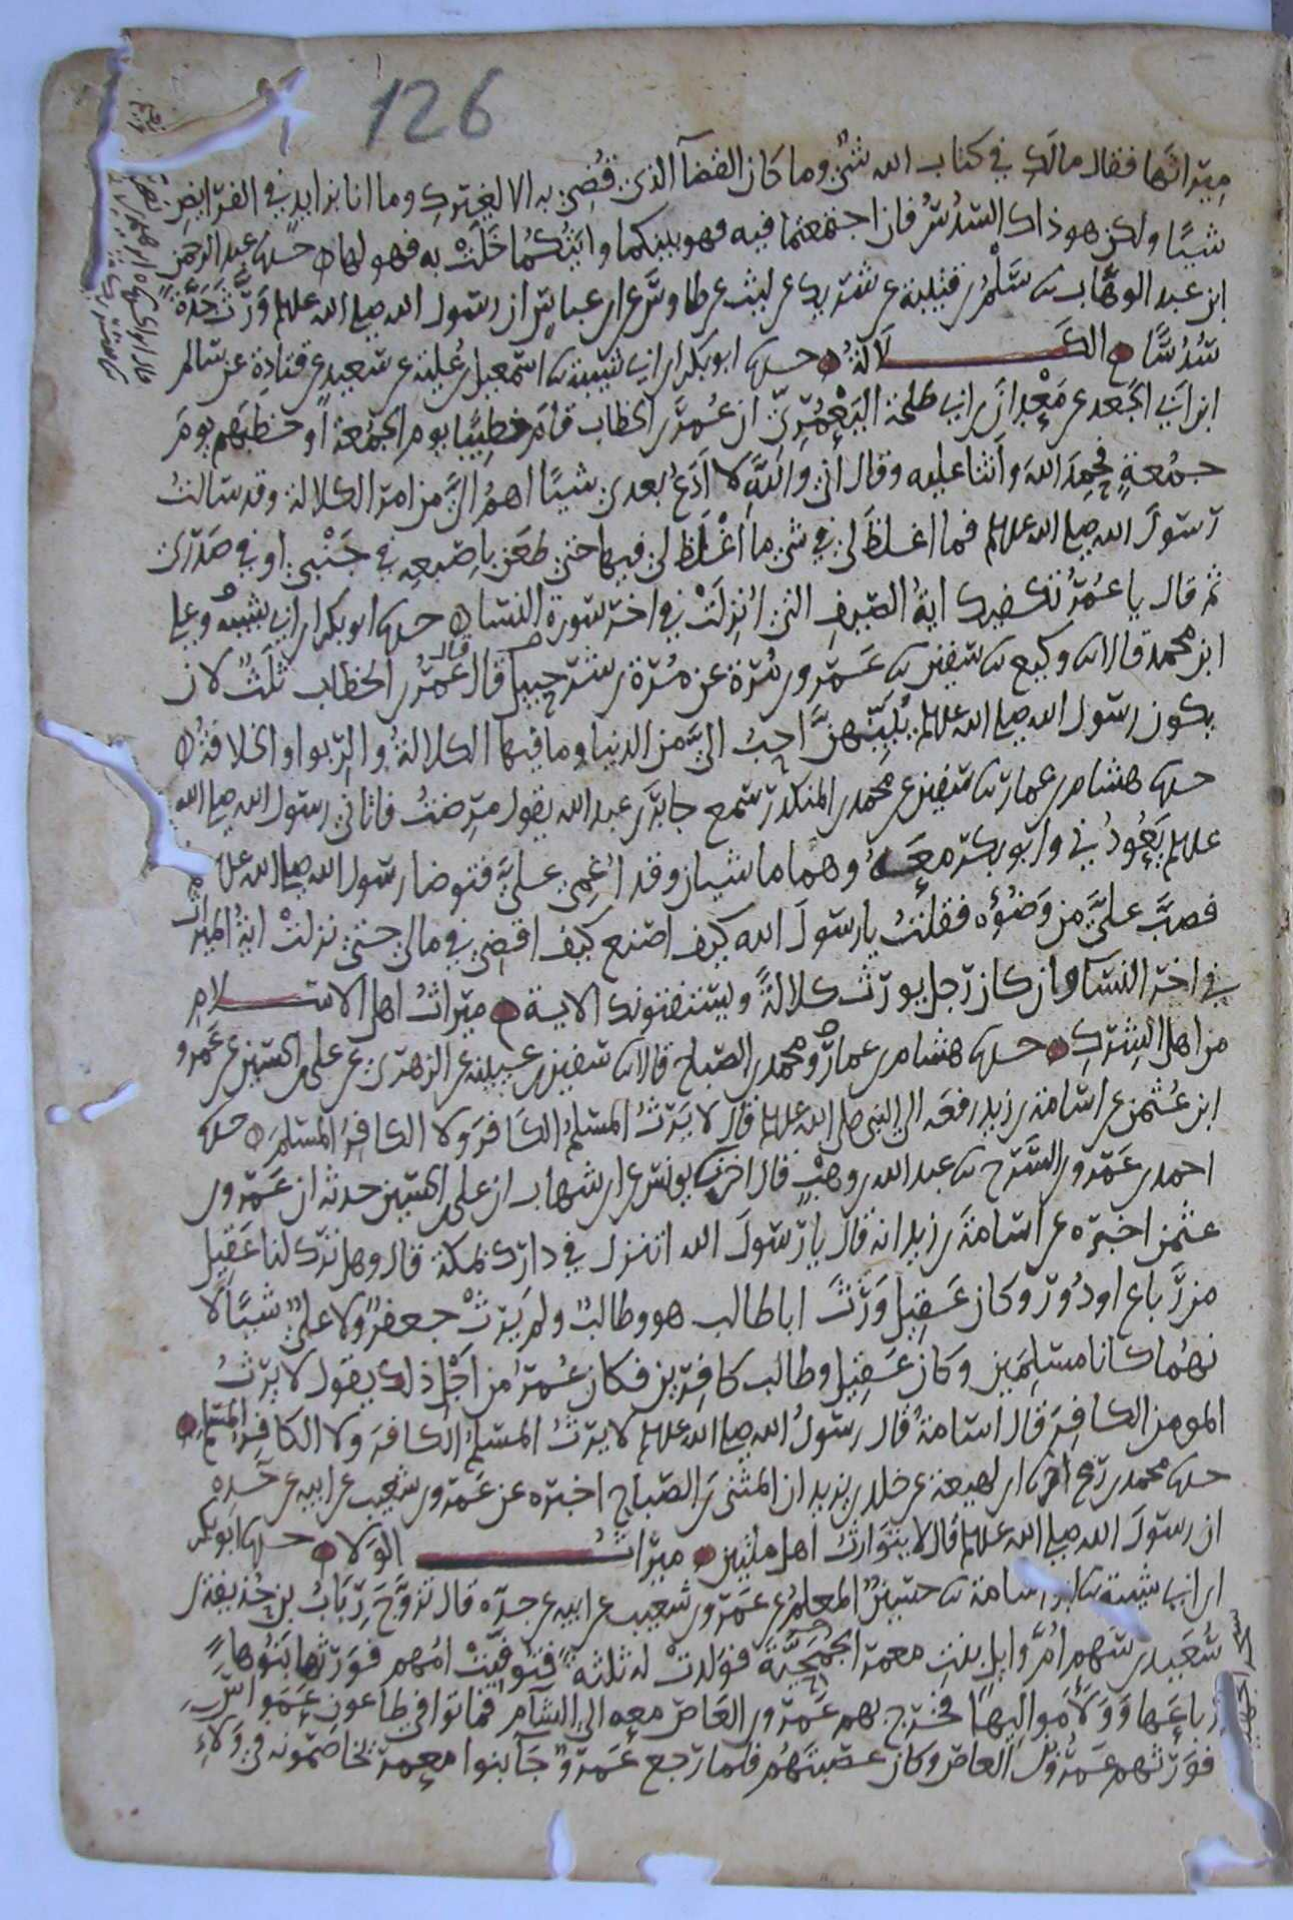 126
ميراثها فقال مالك في كتاب الله شيء وما كان القضآ الذي قُضِيَ به الا لغيرك وما انا بزايد في الفرايض
شيًا ولكن هو ذاك السدُسُ فان اجتمعتما فيه فهو بينكما وايتكما خَلَتْ به فهو لها ه حدثنا عبد الرحمن
ابن عبد الوهاب ثنا سَلْمُ بن قتيبة عن شريك عن ليث عن طاوس عن ابن عباس ان رسول الله صلى الله عليه وسلم وَرَّثَ جَدَّةً
سُدُسًا الكَلَالَةُ حدثنا ابو بكر ابن ابي شيبة ثنا اسمعيل بن عُلية عن سعيد عن قتادة عن سالم
ابن ابي الجَعد عن مَعْدان بن ابي طلحة اليَعْمُرِيِّ ان عُمر بن الخطاب قام خطيبًا يوم الجمُعة او خطبهم يوم
جمُعةٍ فحمِدَ اللهَ واثنا عليه وقال اني واللهِ لا اَدَعُ بعدي شيًا اهمُّ اليَّ من امر الكلالة وقد سالتُ
رسولَ الله صلى الله عليه وسلم فما اغلظَ لي في شي ما اغْلَظَ لي فيها حتى طعَن باِصْبعِه في جَنْبي او في صَدْري
ثم قال يا عُمَرُ تكفيك ايةُ الصّيفِ التي اُنزِلَتْ في اخر سورة النسا ه حدثنا ابو بكر ابن ابي شيبة وعلي
ابن محمد قالا ثنا وكيع ثنا سفين ثنا عَمرو بن مُرّة عن مُرّة بن شرحبيل قال قال عُمَرُ بن الخطاب ثَلَثٌ لان
يكون رسول الله صلى الله عليه وسلم بَيَّنهنَّ احبُّ اليَّ من الدنيا وما فيها الكلالةُ والرِّبوا والخلافةُ ه
حدثنا هشام بن عمار ثنا سفين عن محمد بن المنكدر سمع جابر بن عبد الله يقول مرِضتُ فاتاني رسول الله صلى الله
عليه وسلم يَعُودُني وابو بكر معَهُ وهما ماشيان وقد اُغْمِيَ عليَّ فتوضا رسول الله صلى الله عليه وسلم
فصبَّ عليَّ من وَضُوءه فقلتُ يا رسولَ الله كيف اصنع كيف اقضي في مالي حتى نزلتْ ايةُ الميراث
في اخر النسا وان كان رجل يورث كلالةً ويستفتونك الاية ميراثُ اهل الاسلام
من اهل الشرك حدثنا هشام بن عمار ومحمد بن الصباح قالا ثنا سفين بن عيينة عن الزهري عن علي بن الحسين عن عَمرو
ابن عُثمن عن اسامة بن زيد رفعَه الى النبي صلى الله عليه وسلم قال لا يَرثُ المسلمُ الكافرَ ولا الكافرُ المسلمَ ه حدثنا
احمد بن عَمرو بن السَّرح ثنا عبد الله بن وهبٍ قال اخبرني يونس عن ابن شهاب ان علي بن الحسين حدثه ان عَمرو بن
عثمن اخبره عن اسامةَ بن زيد انه قال يا رسولَ الله اتنزل في دارك بمكة قال وهل ترك لنا عَقيل
من رِباع او دُور وكان عَقيل وَرِثَ ابا طالب هو وطالبٌ ولم يَرثْ جعفرٌ ولا عليٌّ شيًا لا
نهُما كانا مسلِمَين وكان عَقيل وطالب كافِرَين فكان عُمرُ من اَجْلِ ذلك يقول لا يرثُ
المومن الكافِرَ قال اسامةُ قال رسولُ الله صلى الله عليه وسلم لا يرثُ المسلمُ الكافرَ ولا الكافرُ المسلمَ
حدثنا محمد بن رمح اخبرنا ابن لهيعة عن خلد بن يزيد ان المثنى بن الصّباح اخبره عن عَمرو بن شعيب عن ابيه عن جده
ان رسولَ الله صلى الله عليه وسلم قال لا يتوارثُ اهل ملتين ميراثُ الوَلا حدثنا ابو بكر
ابن ابي شيبة ثنا ابو اسامة ثنا حسين المعلم عن عَمرو بن شعيب عن ابيه عن جده قال تزوَّجَ رِيَابُ بن حُذيفة بن
سُعَيد بن سَهم اُمَّ وايلٍ بنتِ معمر الجُمَحِيَّةَ فولدتْ له ثلثةً فتُوفِّيتْ امُهم فوَرثها بَنُوها
رِباعَها وَوَلَاءَ مواليها فخرج بهم عَمرو بن العاص معه الى الشام فماتوا في طاعون عَمَواسَ
فوَرثهم عَمرُو بن العاص وكان عصبتَهُم فلما رجع عَمرٌو جآ بنوا معمر يخاصمونه في وَلاءِ